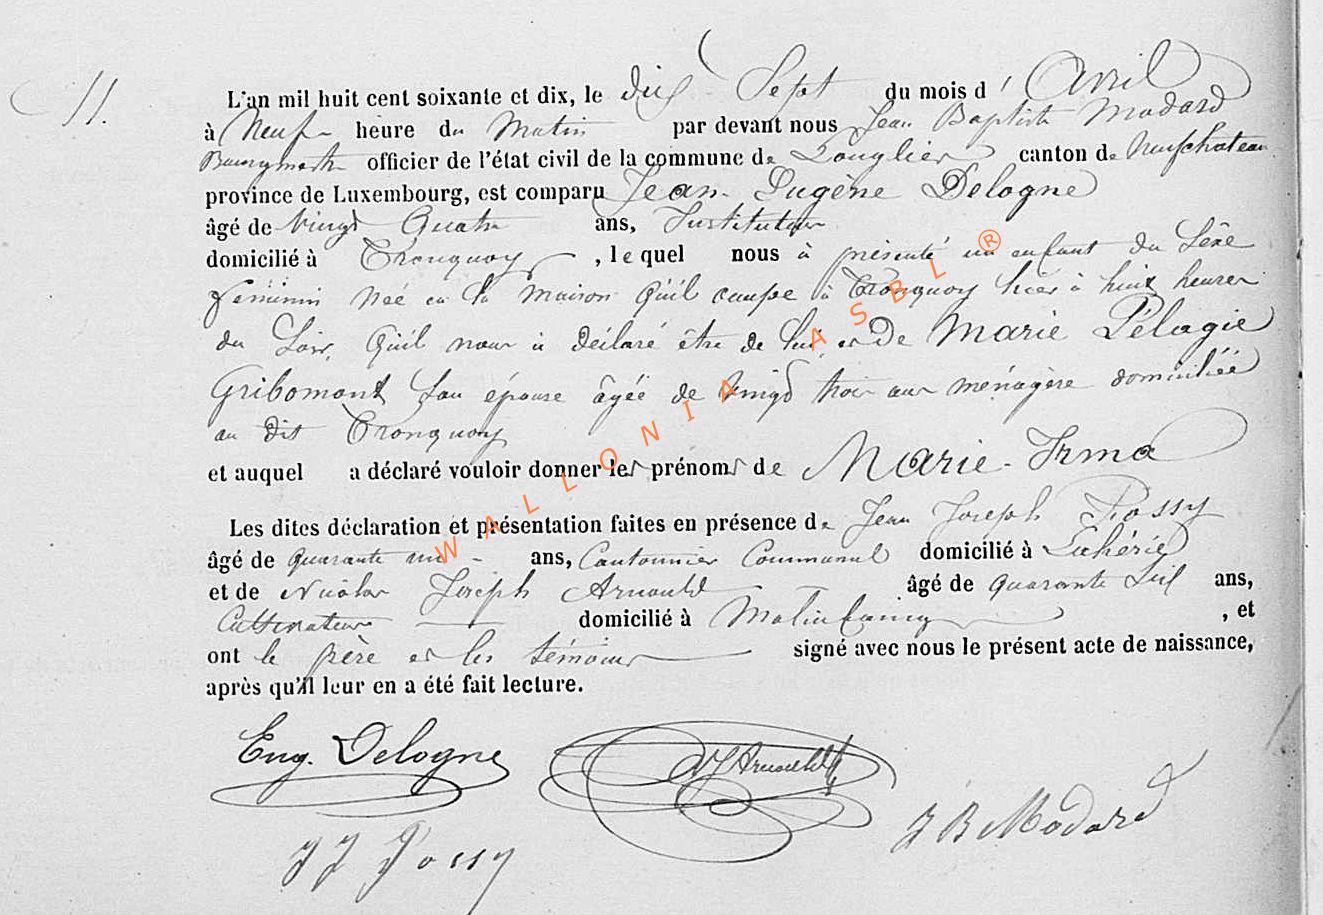 11.
L'an mil huit cent soixante et dix, le dix Sept du mois d' Avril
à Neuf heure du Matin par devant nous Jean Baptiste Modard
Bourgmestre officier de l'état civil de la commune de Longlier canton de Neufchateau
province de Luxembourg, est comparu Jean Eugène Delogne
âgé de Vingt Quatre ans, Instituteur
domicilié à Tronquoy, lequel nous à présenté un enfant du Sexe
féminin née en la maison qu'il occupe à Tronquoy hier à huit heures
du Soir, Qu'il nous à déclaré être de lui et de Marie Pélagie
Gribomont Son épouse âgée de vingt trois ans ménagère domiciliée
au dit Tronquoy
et auquel a déclaré vouloir donner les prénoms de Marie-Irma
Les dites déclaration et présentation faites en présence de Jean Joseph Possy
âgé de quarante un ans, Cantonnier Communal domicilié à Lahérie
et de Nicolas Joseph Arnould âgé de quarante Six ans,
Cultivateur domicilié à Molinfaing, et
ont le père et les témoins signé avec nous le présent acte de naissance,
après qu'il leur en a été fait lecture.
Eug. Delogne
NJ Arnould
JJ Possy
JB Modard
WALLONIA ASBL ®